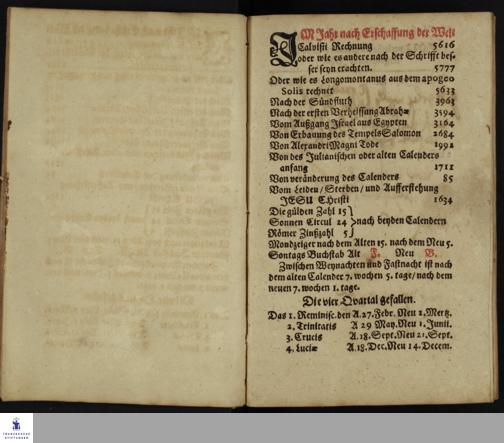 IM Jahr nach Erschaffung der Welt
Calvisii Rechnung 5616
oder wie es andere nach der Schrifft bes-
ser seyn erachten. 5777
Oder wie es Longomontanus aus dem apogeo
Solis rechnet 5633
Nach der Sündfluth 3961
Nach der ersten Verheissung Abrahæ 3594
Vom Außgang Israel aus Egypten 3164
Von Erbauung des Tempels Salomon 2684
Von Alexandri Magni Tode 1992
Von des Julianischen oder alten Calenders
anfang 1711
Von veränderung des Calenders 85
Vom Leiden/ Sterben/ und Aufferstehung
JESU Christi 1634
Die gülden Zahl 15
Sonnen Circul 24 nach beyden Calendern
Römer Zinßzahl 5
Mondzeiger nach dem Alten 15. nach dem Neu 5.
Sontags Buchstab Alt F. Neu B.
Zwischen Weynachten und Fastnacht ist nach
dem alten Calender 7. wochen 5. tage/ nach dem
neuen 7. wochen 1. tage.
Die vier Qvartal gefallen.
Das 1. Reminisc. den A. 27. Febr. Neu 1. Mertz.
2. Trinitatis A 29 May. Neu 1. Junii.
3. Crucis A. 18. Sept. Neu 21. Sept.
4. Luciæ A. 18. Dec. Neu 14. Decem.
FRANCKESCHE
STIFTUNGEN